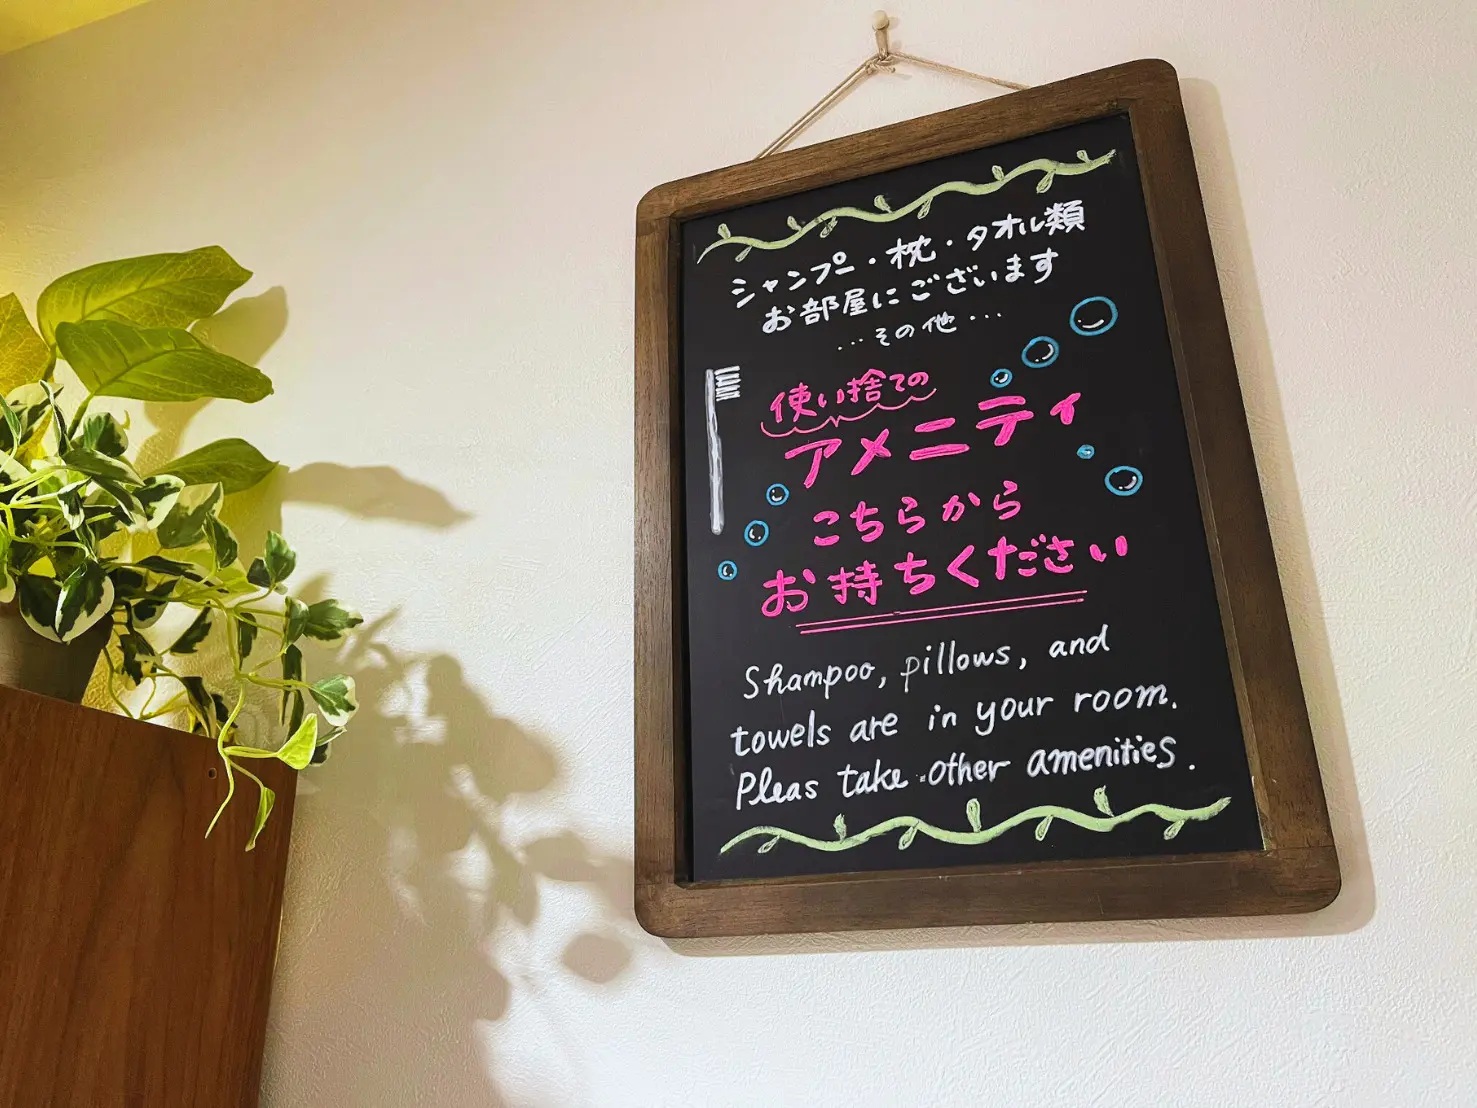 シャンプー・枕・タオル類
お部屋にございます
…その他…
使い捨ての
アメニティ
こちらから
お持ちください
Shampoo, pillows, and
towels are in your room.
Pleas take other amenities.